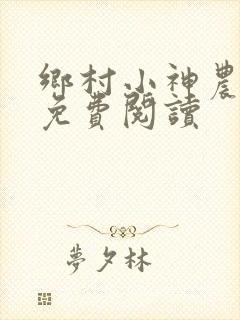 鄉村小神農
免費閱讀
夢夕林